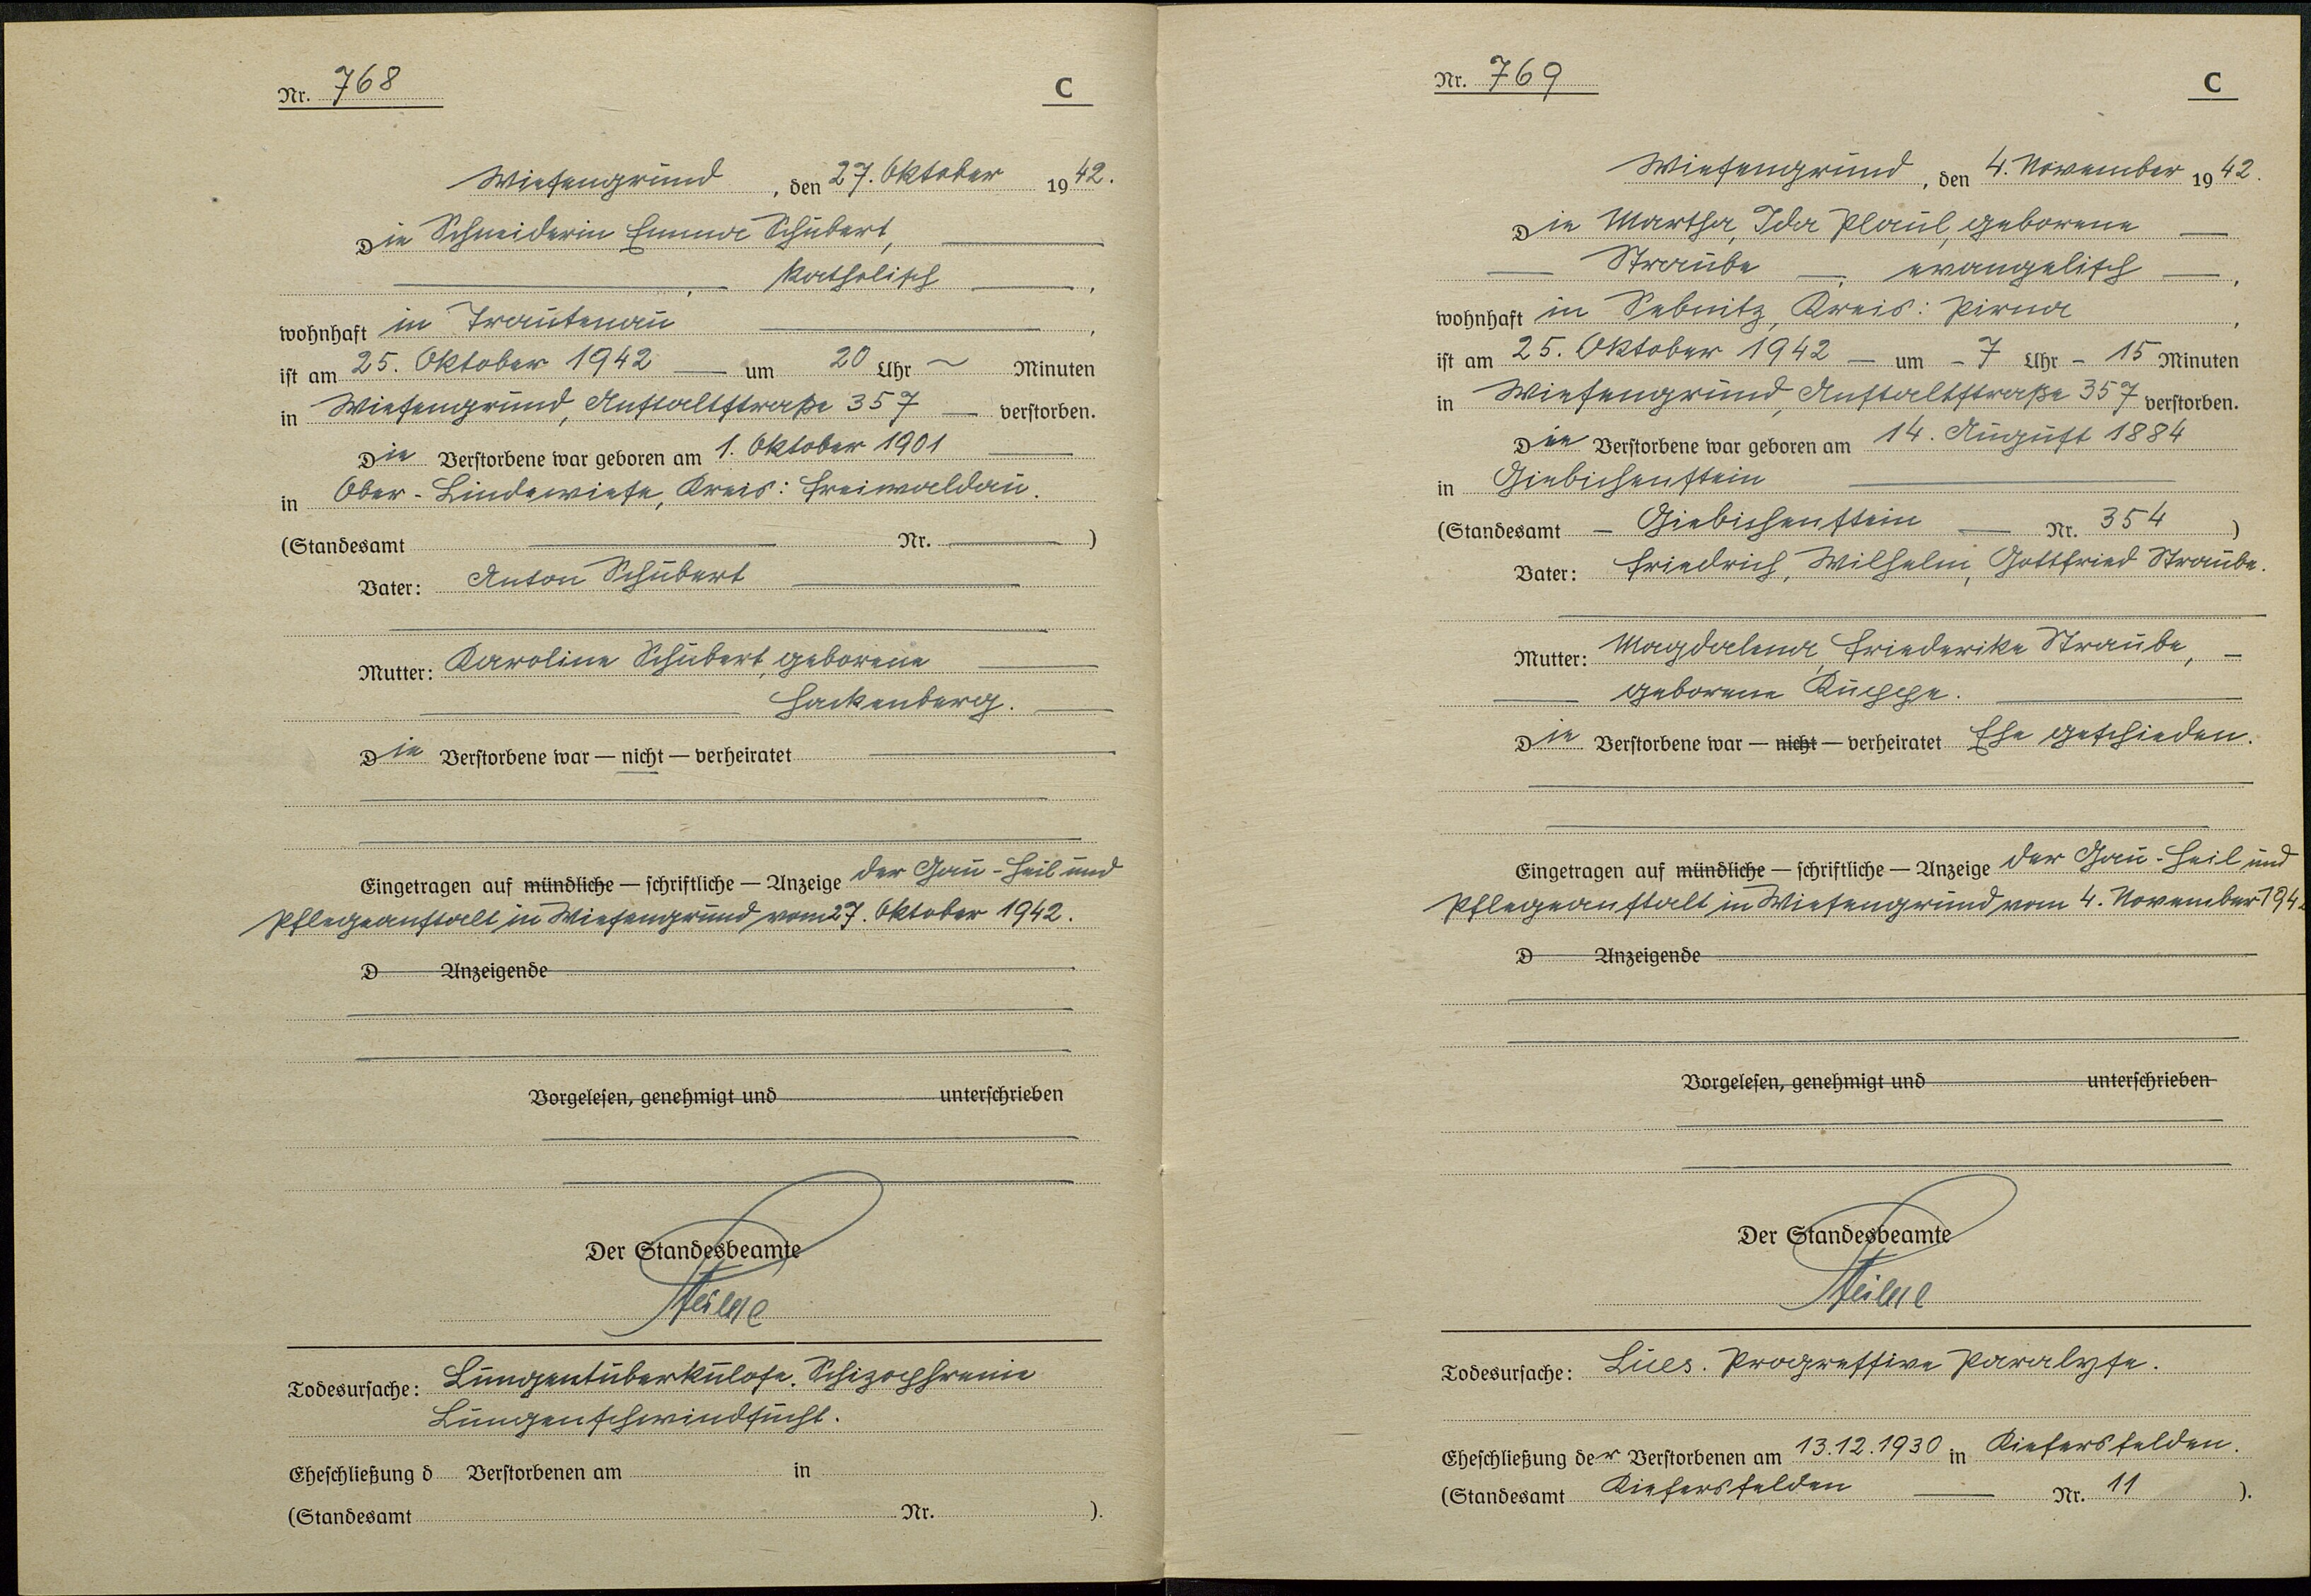 Nr. 768
C
Wiesengrund, den 27. Oktober 1942.
Die Schneiderin Emma Schubert,
katholisch,
wohnhaft in Trautenau,
ist am 25. Oktober 1942 um 20 Uhr ~ Minuten
in Wiesengrund, Anstaltstraße 357 verstorben.
Die Verstorbene war geboren am 1. Oktober 1901
in Ober-Lindewiese, Kreis: Freiwaldau.
(Standesamt Nr. )
Vater: Anton Schubert
Mutter: Karoline Schubert, geborene
Hackenberg.
Die Verstorbene war — nicht — verheiratet
Eingetragen auf mündliche — schriftliche — Anzeige der Gau-Heil und
Pflegeanstalt in Wiesengrund vom 27. Oktober 1942.
D Anzeigende
Vorgelesen, genehmigt und unterschrieben
Der Standesbeamte
Todesursache: Lungentuberkulose. Schizophrenie
Lungenschwindsucht.
Eheschließung d Verstorbenen am in
(Standesamt Nr. ).
Nr. 769
C
Wiesengrund, den 4. November 1942.
Die Martha, Ida Plaul, geborene
Straube, evangelisch,
wohnhaft in Sebnitz, Kreis: Pirna,
ist am 25. Oktober 1942 — um - 7 Uhr - 15 Minuten
in Wiesengrund, Anstaltstraße 357 verstorben.
Die Verstorbene war geboren am 14. August 1884
in Giebichenstein
(Standesamt - Giebichenstein — Nr. 354 )
Vater: Friedrich, Wilhelm, Gottfried Straube.
Mutter: Magdalena, Friederike Straube,
geborene Kuppe.
Die Verstorbene war — nicht — verheiratet Ehe geschieden.
Eingetragen auf mündliche — schriftliche — Anzeige der Gau-Heil und
Pflegeanstalt in Wiesengrund vom 4. November 194
D Anzeigende
Vorgelesen, genehmigt und unterschrieben
Der Standesbeamte
Todesursache: Lues. Progressive Paralyse.
Eheschließung der Verstorbenen am 13.12.1930 in Kiefersfelden.
(Standesamt Kiefersfelden — Nr. 11 ).